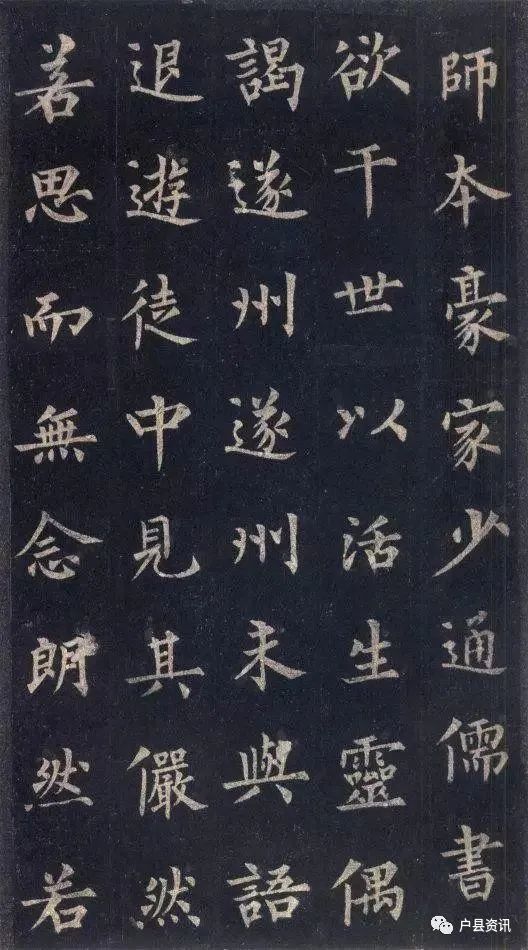 師本豪家少通儒書
欲干世以活生靈偶
謁遂州遂州未與語
退遊徒中見其儼然
若思而無念朗然若
户县资讯